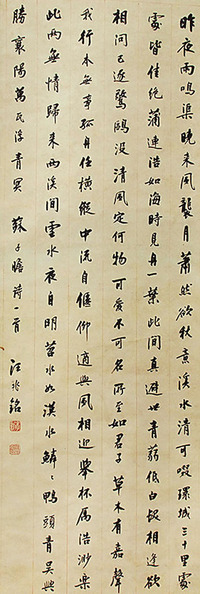 昨夜雨鳴渠曉來風襲月蕭然欲秋意溪水清可啜環城三十里處
處皆佳絕蒲蓮浩如海時見舟一葉此間真避世青蒻低白髮相逢欲
相問已逐驚鷗沒清風定何物可愛不可名所至如君子草木有嘉聲
我行本無事孤舟任橫縱中流自偃仰適與風相迎舉杯屬浩渺樂
此兩無情歸來兩溪間雲水夜自明苕水如漢水鱗〻鴨頭青吳興
勝襄陽萬瓦浮青冥 蘇子瞻詩一首 汪兆銘